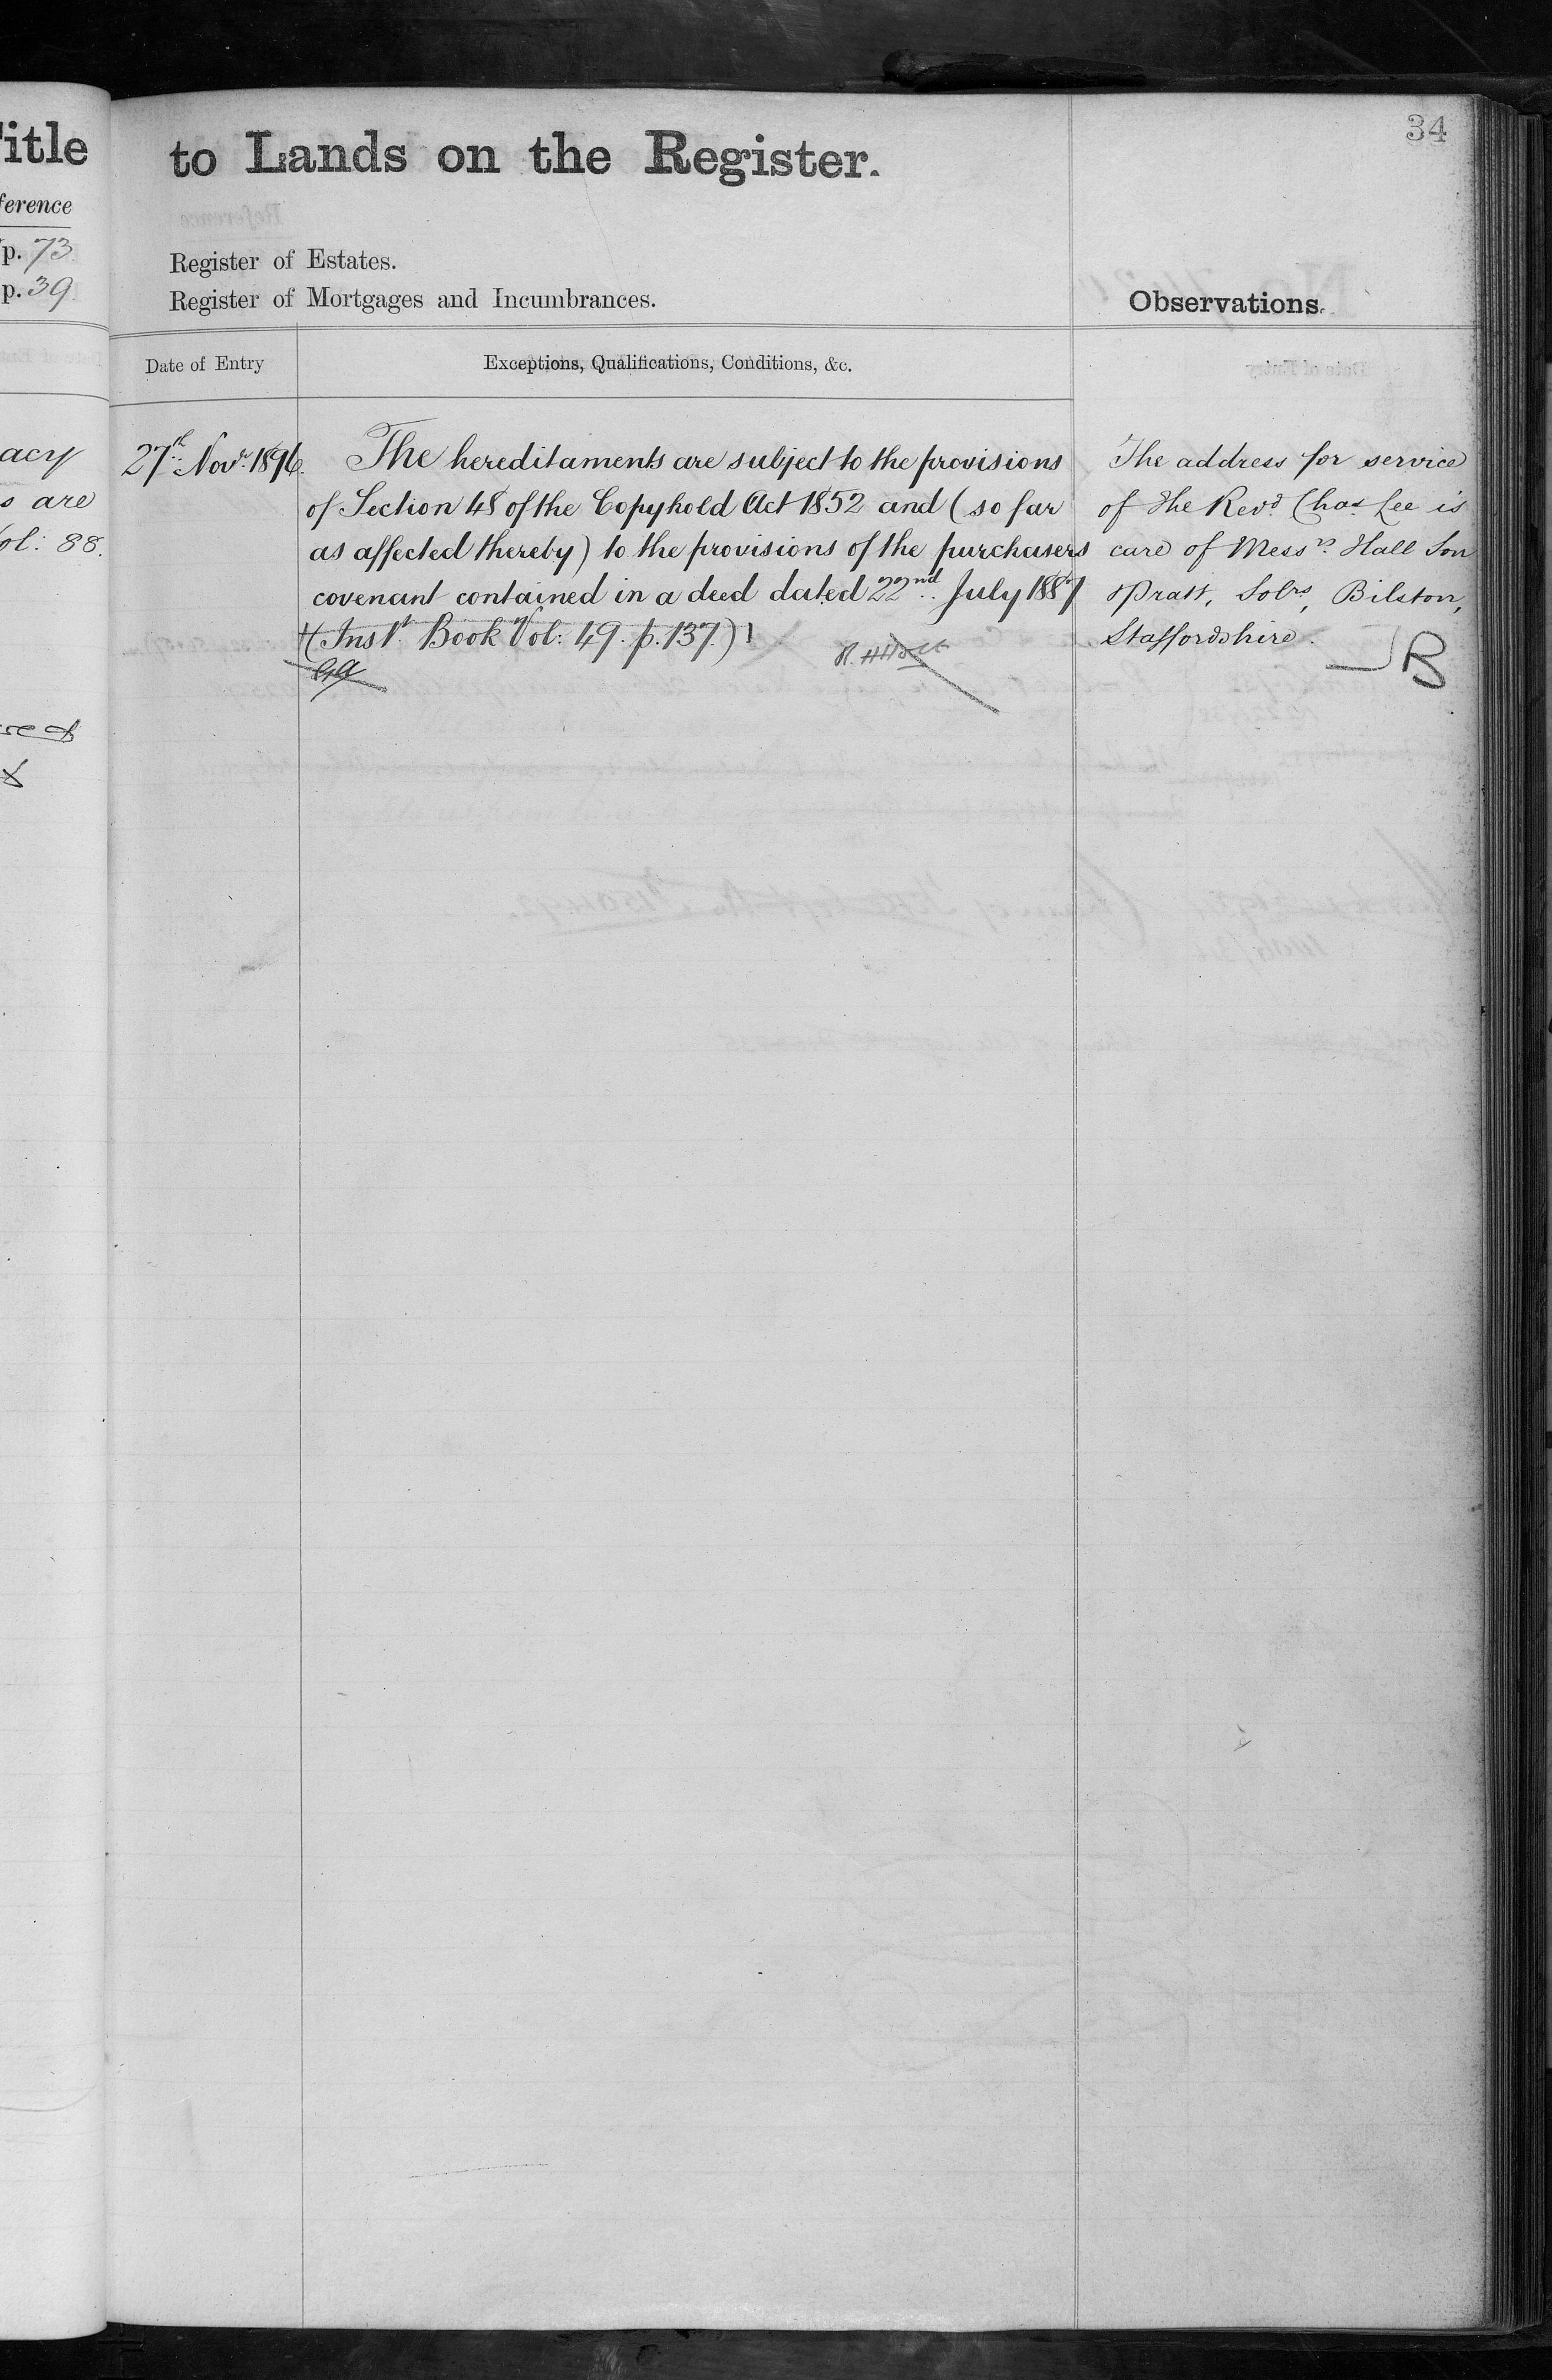 34
itle
to Lands on the Register.
ference
p. 73.
Register of Estates.
p. 39.
Register of Mortgages and Incumbrances.
Observations.
Date of Entry
Exceptions, Qualifications, Conditions, &c.
acy
s are
ol: 88.
27th Novr. 1896.
The hereditaments are subject to the provisions
of Section 48 of the Copyhold Act 1852 and (so far
as affected thereby) to the provisions of the purchasers
covenant contained in a deed dated 22nd July 1887
(Inst. Book Vol: 49. p. 137.)
The address for service
of the Revd. Chas Lee is
care of Messrs. Hall Son
& Pratt, Solrs, Bilston,
Staffordshire.
B